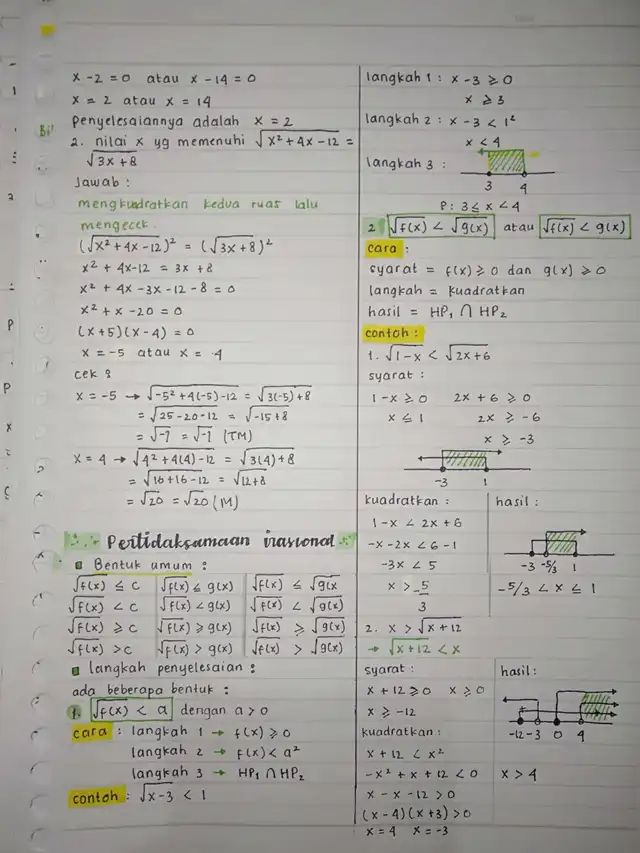 x - 2 = 0 atau x - 14 = 0
x = 2 atau x = 14
penyelesaiannya adalah x = 2
2. nilai x yg memenuhi √(x² + 4x - 12) =
√(3x + 8)
Jawab :
mengkuadratkan kedua ruas lalu
mengecek.
(√(x² + 4x - 12))² = (√(3x + 8))²
x² + 4x - 12 = 3x + 8
x² + 4x - 3x - 12 - 8 = 0
x² + x - 20 = 0
(x + 5)(x - 4) = 0
x = -5 atau x = 4
cek :
x = -5 → √(-5² + 4(-5) - 12) = √(3(-5) + 8)
= √(25 - 20 - 12) = √(-15 + 8)
= √-7 = √-7 (TM)
x = 4 → √(4² + 4(4) - 12) = √(3(4) + 8)
= √(16 + 16 - 12) = √(12 + 8)
= √20 = √20 (M)
Pertidaksamaan irasional
Bentuk umum :
√f(x) ≤ c √f(x) ≤ g(x) √f(x) ≤ √g(x)
√f(x) < c √f(x) < g(x) √f(x) < √g(x)
√f(x) ≥ c √f(x) ≥ g(x) √f(x) ≥ √g(x)
√f(x) > c √f(x) > g(x) √f(x) > √g(x)
langkah penyelesaian :
ada beberapa bentuk :
1. √f(x) < a dengan a > 0
cara : langkah 1 → f(x) ≥ 0
langkah 2 → f(x) < a²
langkah 3 → HP₁ ∩ HP₂
contoh : √(x - 3) < 1
langkah 1 : x - 3 ≥ 0
x ≥ 3
langkah 2 : x - 3 < 1²
x < 4
langkah 3 :
3 4
P : 3 ≤ x < 4
2 √f(x) < √g(x) atau √f(x) < g(x)
cara :
syarat = f(x) ≥ 0 dan g(x) ≥ 0
langkah = kuadratkan
hasil = HP₁ ∩ HP₂
contoh :
1. √(1 - x) < √(2x + 6)
syarat :
1 - x ≥ 0 2x + 6 ≥ 0
x ≤ 1 2x ≥ -6
x ≥ -3
-3 1
kuadratkan :
1 - x < 2x + 6
-x - 2x < 6 - 1
-3x < 5
x > -5
3
hasil :
-3 -5/3 1
-5/3 < x ≤ 1
2. x > √(x + 12)
→ √(x + 12) < x
syarat :
x + 12 ≥ 0 x ≥ 0
x ≥ -12
kuadratkan :
x + 12 < x²
-x² + x + 12 < 0
x - x - 12 > 0
(x - 4)(x + 3) > 0
x = 4 x = -3
hasil :
-12 -3 0 4
x > 4